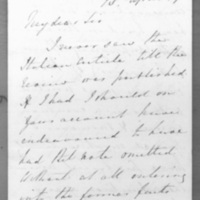 My dear Sir
I never saw the
Italian Article till the
was published
& if I had I should on
your account have
endeavoured to have
had that note omitted
without at all entering
into the former facts